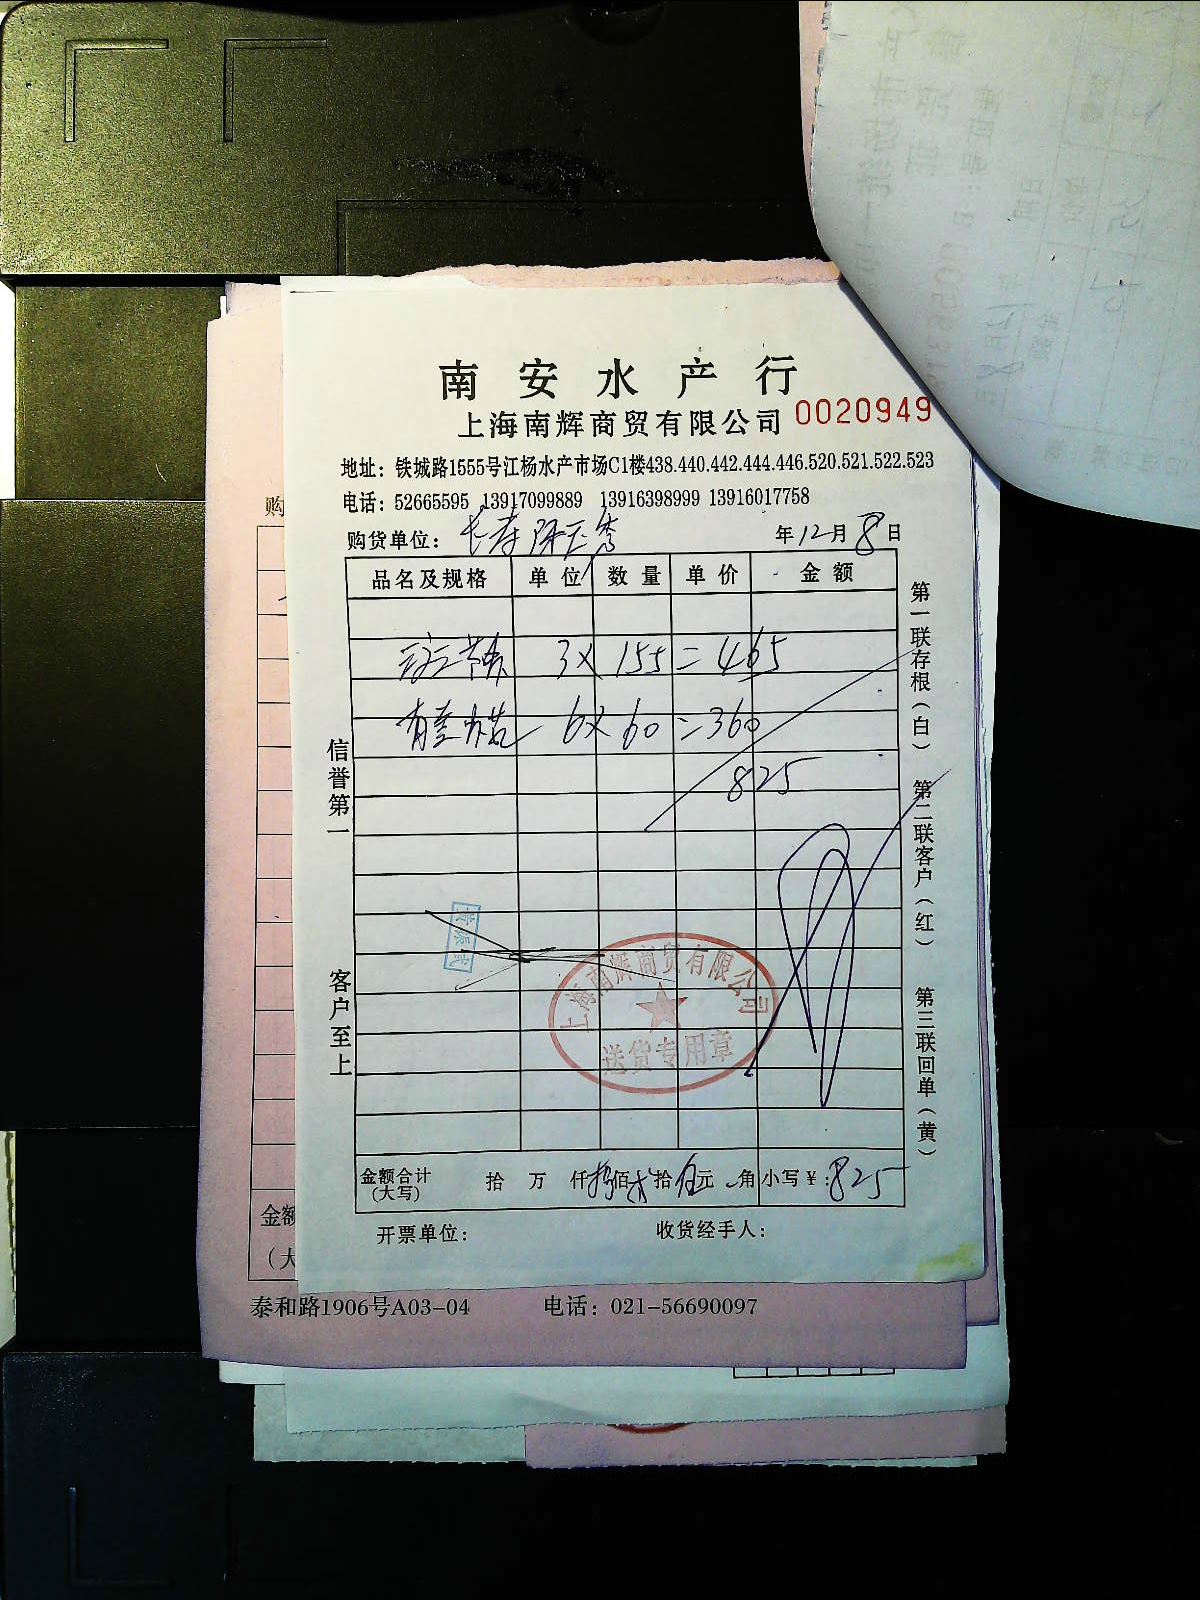 南安水产行
上海南辉商贸有限公司 0020949
地址：铁城路1555号江杨水产市场C1楼438.440.442.444.446.520.521.522.523
电话：52665595 13917099889 13916398999 13916017758
购货单位： 年12月8日
品名及规格 单位 数量 单价 金额
3 × 155 = 465
6 × 60 = 360
825
信誉第一
客户至上
第一联存根（白）
第二联客户（红）
第三联回单（黄）
上海南辉商贸有限公司
送货专用章
金额合计（大写） 拾 万 仟 捌佰 贰拾 伍元 角 小写￥：825
开票单位： 收货经手人：
购
金额
（大
泰和路1906号A03-04 电话：021-56690097